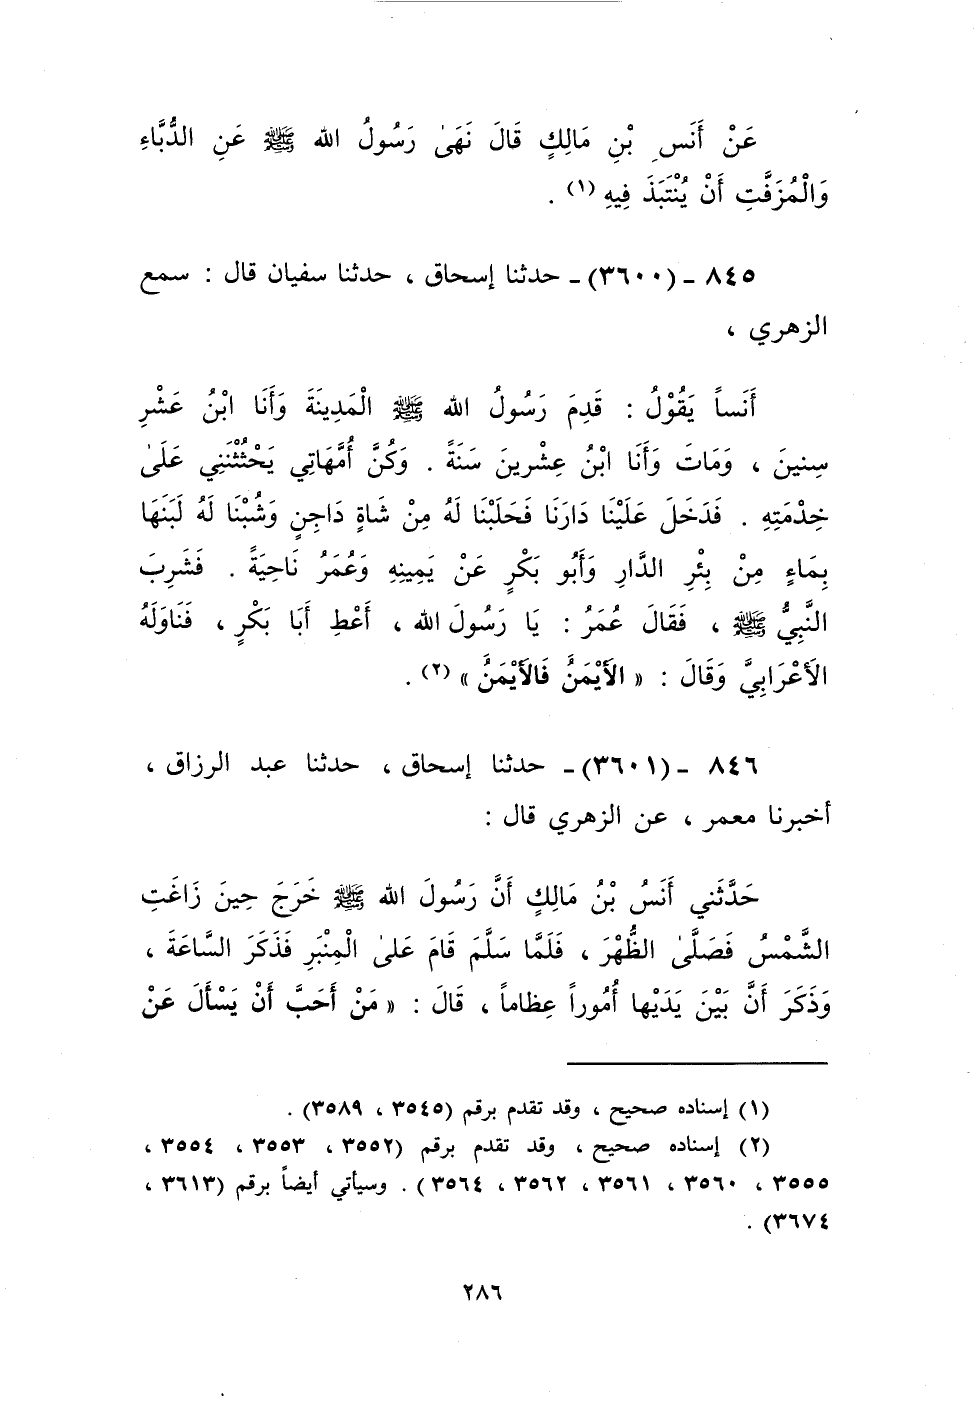 عَنْ أَنَسِ بْنِ مَالِكٍ قَالَ نَهَىٰ رَسُولُ الله ﷺ عَنِ الدُّبَّاءِ
وَالْمُزَفَّتِ أَنْ يُنْتَبَذَ فِيهِ (١) .
٨٤٥ ـ (٣٦٠٠)ـ حدثنا إسحاق ، حدثنا سفيان قال : سمع
الزهري ،
أَنَساً يَقُوْلُ : قَدِمَ رَسُولُ الله ﷺ الْمَدِينَةَ وَأَنَا ابْنُ عَشْرِ
سِنينَ ، وَمَاتَ وَأَنَا ابْنُ عِشْرينَ سَنَةً . وَكُنَّ أُمَّهَاتِي يَحْثُثْنَنِي عَلَىٰ
خِدْمَتِهِ . فَدَخَلَ عَلَيْنَا دَارَنَا فَحَلَبْنَا لَهُ مِنْ شَاةٍ دَاجِنٍ وَشُبْنَا لَهُ لَبَنَهَا
بِمَاءٍ مِنْ بِئْرِ الدَّارِ وَأَبُو بَكْرٍ عَنْ يَمِينِهِ وَعُمَرُ نَاحِيَةً . فَشَرِبَ
النَّبِيُّ ﷺ ، فَقَالَ عُمَرُ : يَا رَسُولَ الله ، أَعْطِ أَبَا بَكْرٍ ، فَنَاوَلَهُ
الأَعْرَابِيَّ وَقَالَ : « الأَيْمَنُ فَالأَيْمَنُ » (٢) .
٨٤٦ ـ (٣٦٠١)ـ حدثنا إسحاق ، حدثنا عبد الرزاق ،
أخبرنا معمر ، عن الزهري قال :
حَدَّثَني أَنَسُ بْنُ مَالِكٍ أَنَّ رَسُولَ الله ﷺ خَرَجَ حِينَ زَاغَتِ
الشَّمْسُ فَصَلَّىٰ الظُّهْرَ ، فَلَمَّا سَلَّمَ قَامَ عَلىٰ الْمِنْبَرِ فَذَكَرَ السَّاعَةَ ،
وَذَكَرَ أَنَّ بَيْنَ يَدَيْها أُمُوراً عِظاماً ، قَالَ : « مَنْ أَحَبَّ أَنْ يَسْأَلَ عَنْ
(١) إسناده صحيح ، وقد تقدم برقم (٣٥٤٥ ، ٣٥٨٩) .
(٢) إسناده صحيح ، وقد تقدم برقم (٣٥٥٢ ، ٣٥٥٣ ، ٣٥٥٤ ،
٣٥٥٥ ، ٣٥٦٠ ، ٣٥٦١ ، ٣٥٦٢ ، ٣٥٦٤) . وسيأتي أيضاً برقم (٣٦١٣ ،
٣٦٧٤) .
٢٨٦